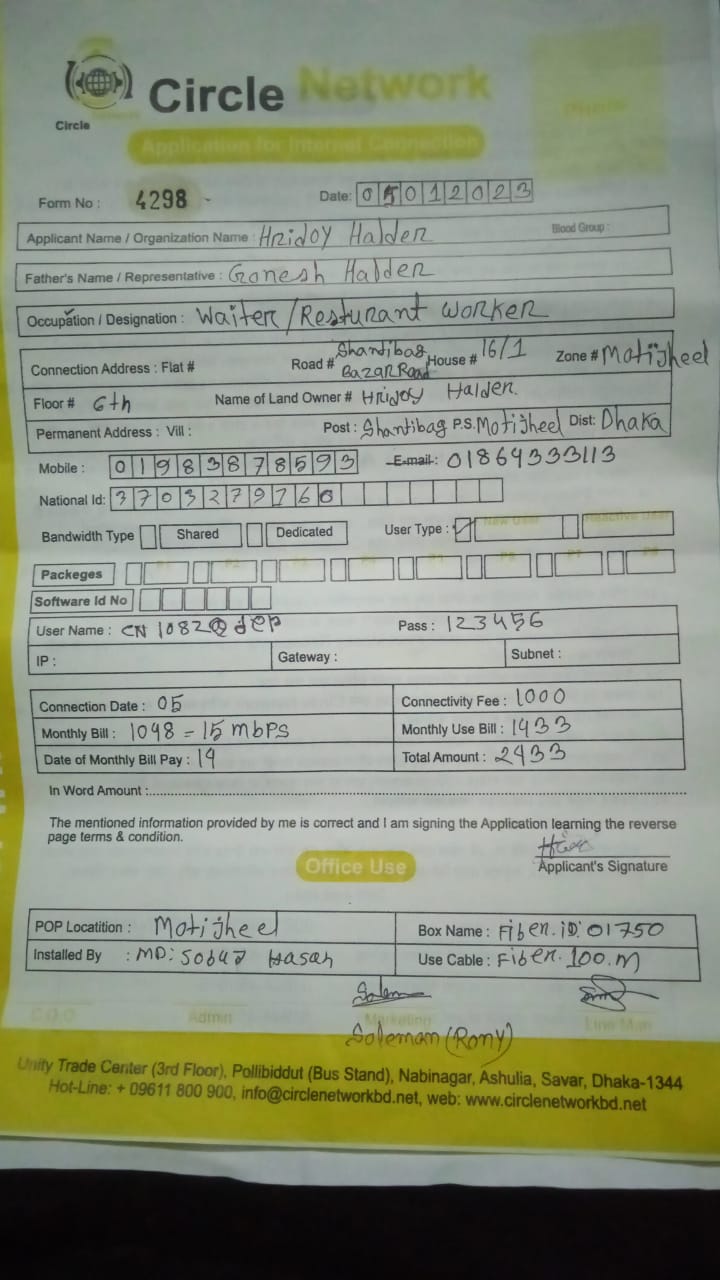 Circle Network
Circle
Application for Internet Connection
Photo
Form No : 4298 Date: 05012023
Applicant Name / Organization Name : Hridoy Halder Blood Group :
Father's Name / Representative : Gonesh Halder
Occupation / Designation : Waiter / Resturant worker
Connection Address : Flat # Road # Shantibag Bazar Road House # 16/1 Zone # Motijheel
Floor # 6th Name of Land Owner # Hridoy Halder.
Permanent Address : Vill : Post : Shantibag P.S. Motijheel Dist: Dhaka
Mobile : 01983878593 E-mail : 01864333113
National Id: 3703279760
Bandwidth Type Shared Dedicated User Type : New User Reactive User
Packeges P1 P2 P3 P4 P5 P6 P7 P8
Software Id No
User Name : CN 1082@dep Pass : 123456
IP : Gateway : Subnet :
Connection Date : 05 Connectivity Fee : 1000
Monthly Bill : 1048 = 15 mbps Monthly Use Bill : 1433
Date of Monthly Bill Pay : 14 Total Amount : 2433
In Word Amount :
The mentioned information provided by me is correct and I am signing the Application learning the reverse
page terms & condition.
Applicant's Signature
Office Use
POP Locatition : Motijheel Box Name : Fiber. iD: 01750
Installed By : MD: Sobuj Hasan Use Cable : Fiber. 100.m
C.O.O Admin Marketing Line Man
Soleman (Rony)
Unity Trade Center (3rd Floor), Pollibiddut (Bus Stand), Nabinagar, Ashulia, Savar, Dhaka-1344
Hot-Line: + 09611 800 900, info@circlenetworkbd.net, web: www.circlenetworkbd.net